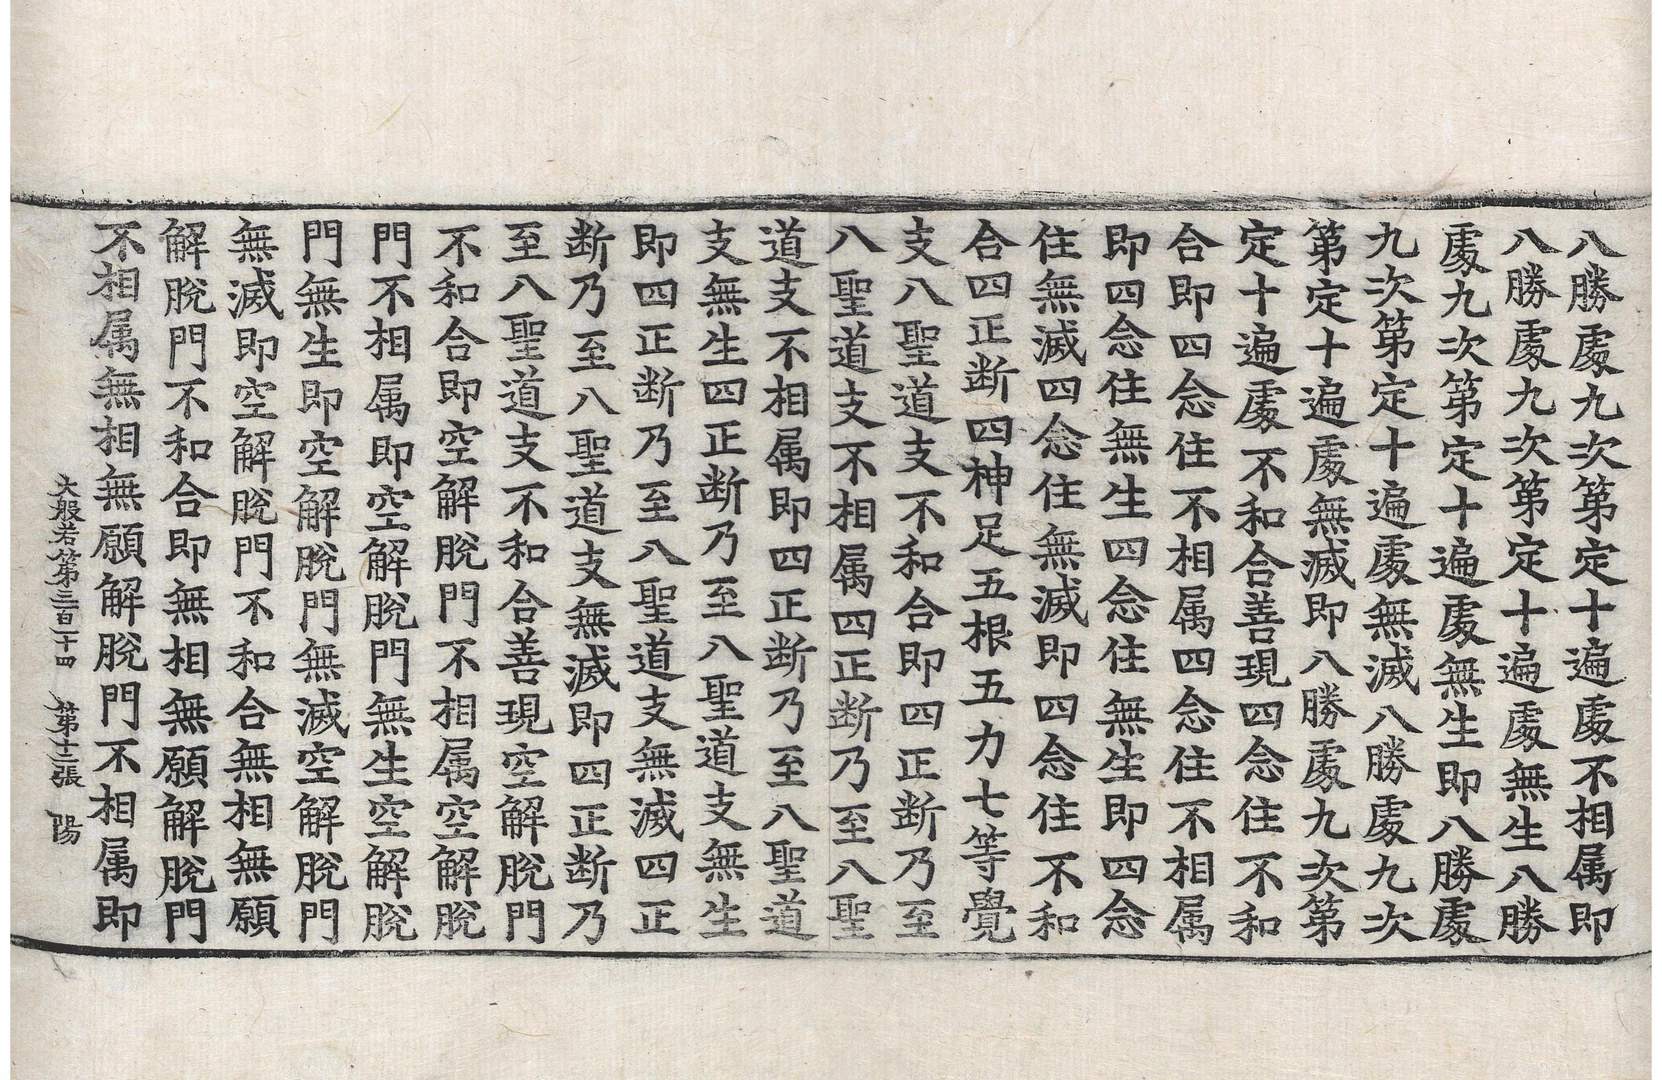 八勝處九次第定十遍處不相属即
八勝處九次第定十遍處無生八勝
處九次第定十遍處無生即八勝處
九次第定十遍處無滅八勝處九次
第定十遍處無滅即八勝處九次第
定十遍處不和合善現四念住不和
合即四念住不相属四念住不相属
即四念住無生四念住無生即四念
住無滅四念住無滅即四念住不和
合四正断四神足五根五力七等覺
支八聖道支不和合即四正断乃至
八聖道支不相属四正断乃至八聖
道支不相属即四正断乃至八聖道
支無生四正断乃至八聖道支無生
即四正断乃至八聖道支無滅四正
断乃至八聖道支無滅即四正断乃
至八聖道支不和合善現空解脫門
不和合即空解脫門不相属空解脫
門不相属即空解脫門無生空解脫
門無生即空解脫門無滅空解脫門
無滅即空解脫門不和合無相無願
解脫門不和合即無相無願解脫門
不相属無相無願解脫門不相属即
大般若第三百一十四 第十二張 陽